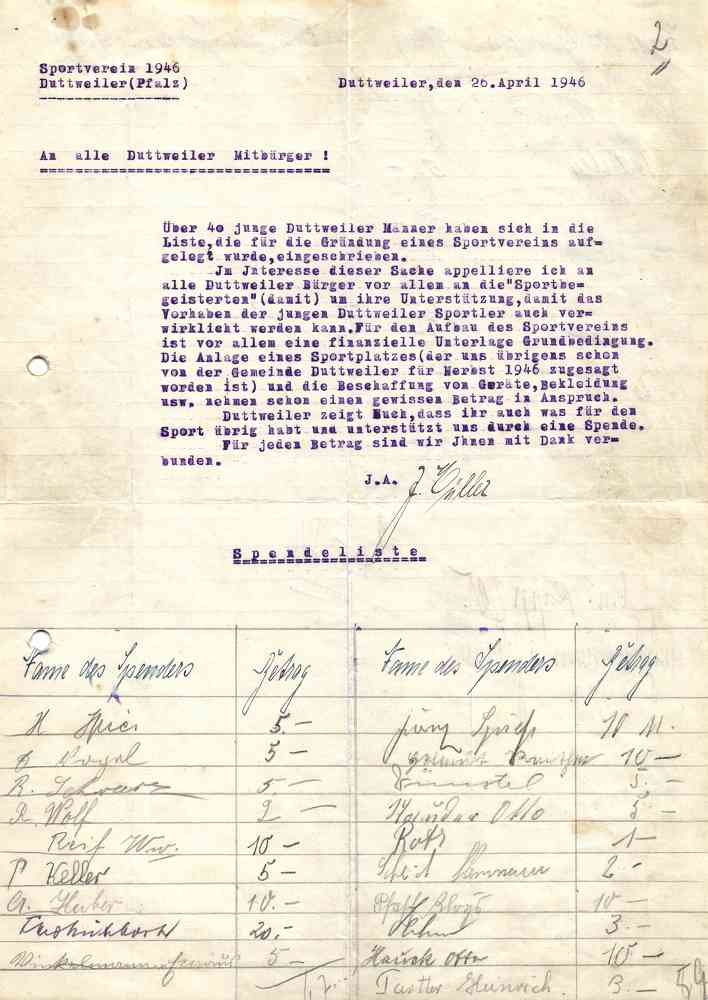 2
Sportverein 1946
Duttweiler(Pfalz)
Duttweiler,den 26.April 1946
An alle Duttweiler Mitbürger !
Über 40 junge Duttweiler Männer haben sich in die
Liste,die für die Gründung eines Sportvereins auf=
gelegt wurde,eingeschrieben.
Jm Jnteresse dieser Sache appelliere ich an
alle Duttweiler Bürger vor allem an die"Sportbe=
geisterten"(damit) um ihre Unterstützung,damit das
Vorhaben der jungen Duttweiler Sportler auch ver=
wirklicht werden kann.Für den Aufbau des Sportvereins
ist vor allem eine finanzielle Unterlage Grundbedingung.
Die Anlage eines Sportplatzes(der uns übrigens schon
von der Gemeinde Duttweiler für Herbst 1946 zugesagt
worden ist) und die Beschaffung von Geräte,Bekleidung
usw. nehmen schon einen gewissen Betrag in Anspruch.
Duttweiler zeigt Euch,dass ihr auch was für den
Sport übrig habt und unterstützt uns durch eine Spende.
Für jeden Betrag sind wir Jhnen mit Dank ver=
bunden.
J.A. J. Müller
Spendeliste
Name des Spenders Betrag Name des Spenders Betrag
H 5.— Jörg Spieß 10 M.
Vogel 5 — 10 —
R. Schwarz 5 — 5. —
R. Wolf 2 — Otto 5 —
Reif Ww. 10 — 1 —
P Keller 5 — 2 -
A. Huber 10.— 10 —
20.- 3. —
Winkelmann 5 — Hauck Otto 10 —
Heinrich. 3. — 59